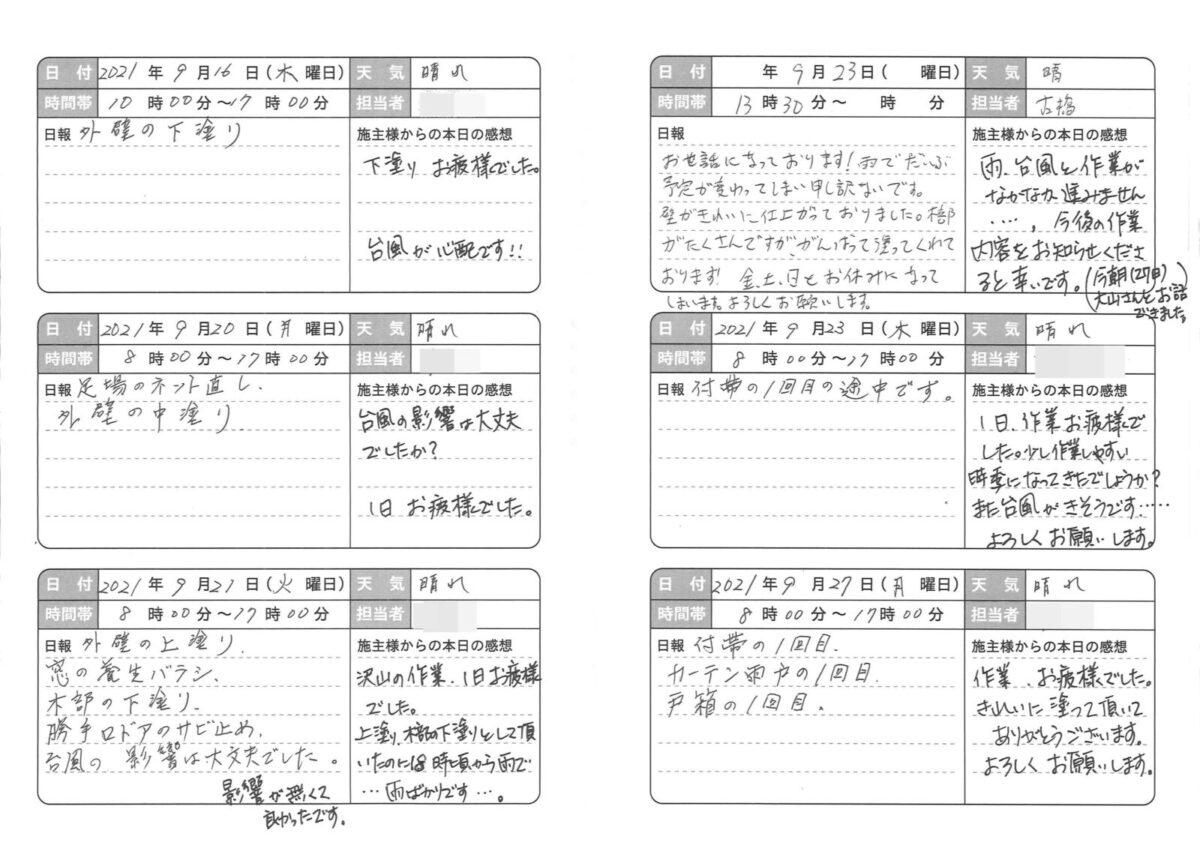 日 付 2021 年 9 月 16 日 (木 曜日) 天 気 晴れ
時間帯 10 時 00 分 ～ 17 時 00 分 担当者
日報 外壁の下塗り
施主様からの本日の感想
下塗り お疲様でした。
台風が心配です!!
日 付 2021 年 9 月 20 日 (月 曜日) 天 気 晴れ
時間帯 8 時 00 分 ～ 17 時 00 分 担当者
日報 足場のネット直し、
外壁の中塗り
施主様からの本日の感想
台風の影響は大丈夫
でしたか?
1日 お疲様でした。
日 付 2021 年 9 月 21 日 (火 曜日) 天 気 晴れ
時間帯 8 時 00 分 ～ 17 時 00 分 担当者
日報 外壁の上塗り、
窓の養生バラシ、
木部の下塗り、
勝手口ドアのサビ止め、
台風の、影響は大丈夫でした。
影響が無くて
良かったです。
施主様からの本日の感想
沢山の作業、1日お疲様
でした。
上塗り、木部の下塗りとして頂
いたのに18時頃から雨で
…雨ばかりです…。
日 付 年 9 月 23 日 ( 曜日) 天 気 晴
時間帯 13 時 30 分 ～ 時 分 担当者 古橋
日報
お世話になっております!雨でだいぶ
予定が変わってしまい申し訳ないです。
壁がきれいに仕上がっておりました。木部
がたくさんですが、がんばって塗ってくれて
おります! 金、土、日とお休みになって
しまいます。よろしくお願いします。
施主様からの本日の感想
雨、台風と作業が
なかなか進みません
‥‥、今後の作業
内容をお知らせくださ
ると幸いです。(今朝(27日)
大山さんとお話
できました。)
日 付 2021 年 9 月 23 日 (木 曜日) 天 気 晴れ
時間帯 8 時 00 分 ～ 17 時 00 分 担当者
日報 付帯の1回目の途中です。
施主様からの本日の感想
1日、作業お疲様で
した。少し作業しやすい
時季になってきたでしょうか?
また台風がきそうです‥‥‥
よろしくお願いします。
日 付 2021 年 9 月 27 日 (月 曜日) 天 気 晴れ
時間帯 8 時 00 分 ～ 17 時 00 分 担当者
日報 付帯の1回目、
カーテン雨戸の1回目、
戸箱の1回目、
施主様からの本日の感想
作業、お疲様でした。
きれいに塗って頂いて
ありがとうございます。
よろしくお願いします。